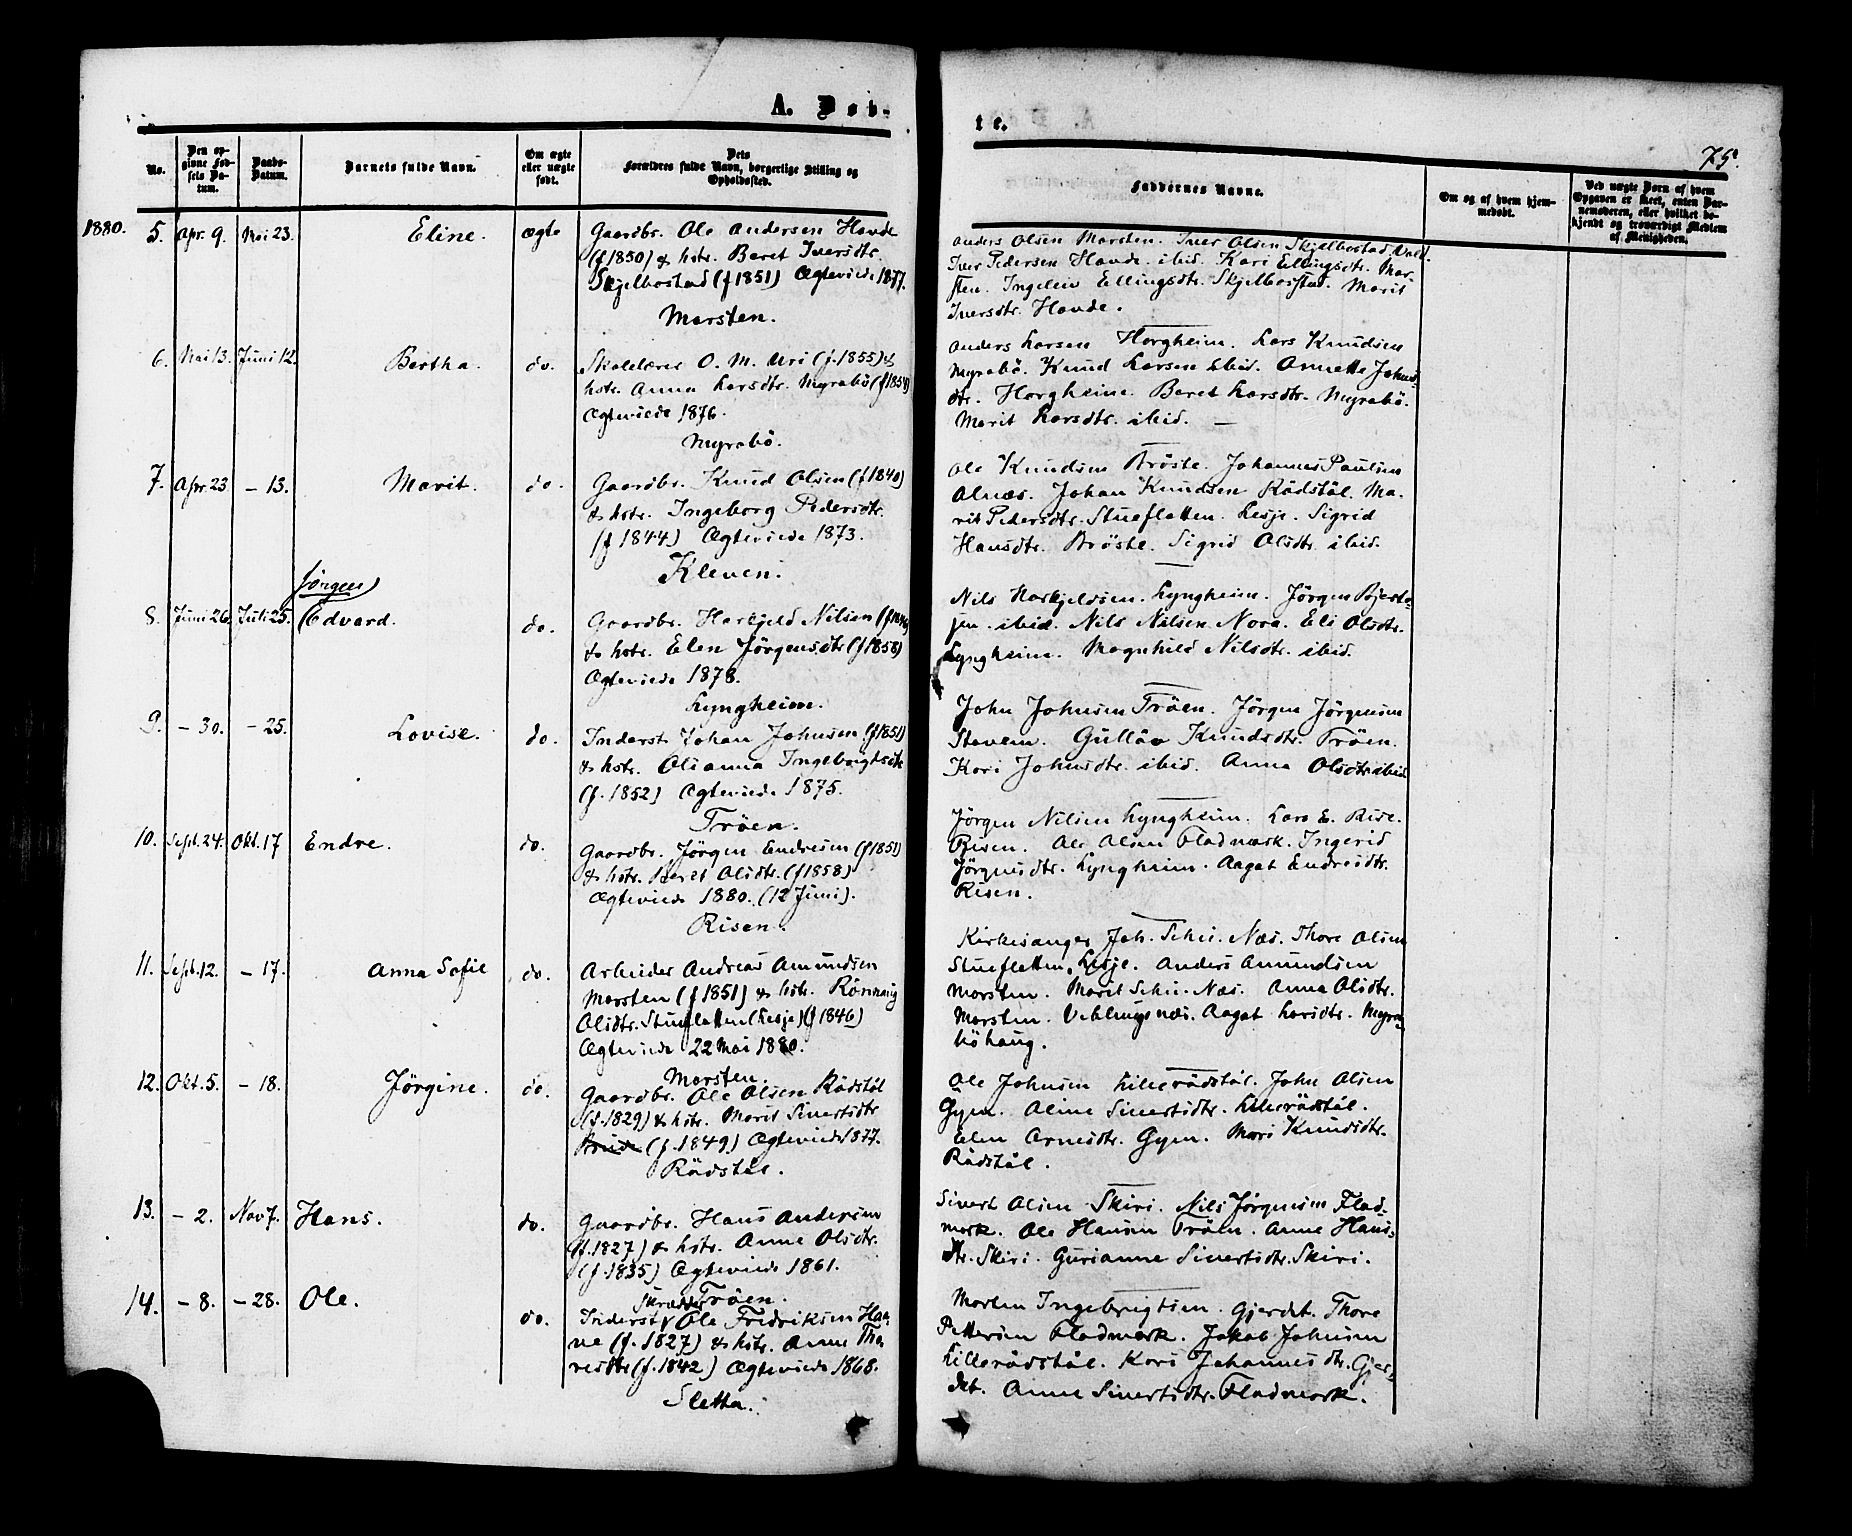 A. Døb-
No.
Den op-
givne Fød-
sels Da-
tum.
Daabs-
Datum.
Barnets fulde Navn.
Om ægte
eller uægte
født.
Dets
Forældres fulde Navn, borgerlige Stilling og
Opholdssted.
1880. 5. Apr. 9. Mai 23. Eline. ægte
Gaardbr. Ole Andersen Havde
(f 1850) & hstr. Beret Iversdtr.
Skjelbostad (f 1851) Ægteviede 1877.
Marsten.
6. Mai 13. Juni 12. Bertha. do.
Skolelærer O. M. Uri (f. 1855) &
hstr. Anna Larsdtr. Myrabö (f 1858)
Ægteviede 1876.
Myrabö.
7. Apr. 23 – 13. Marit. do.
Gaardbr. Knud Olsen (f 1840)
& hstr. Ingeborg Pedersdtr.
(f 1844) Ægteviede 1873.
Kleven.
Jörgen
8. Juni 26. Juli 25. Edvard. do.
Gaardbr. Haskjeld Nilsen
& hstr. Elen Jörgensdtr (f 1858)
Ægteviede 1878.
Lyngheim.
9. – 30. – 25. Lovise. do.
Inderst Johan Johnsen (f 1851)
& hstr. Olianna Ingebrigtsdtr
(f. 1852) Ægteviede 1875.
Tröen.
10. Sept. 24. Okt. 17 Endre. do.
Gaardbr. Jörgen Endresen (f 1851)
& hstr. Beret Olsdtr. (f 1858)
Ægteviede 1880. (12 Juni).
Risen.
11. Sept. 12. – 17. Anna Sofie do.
Arbeider Andreas Amundsen
Marsten (f 1851) & hstr. Rönnaug
Olsdtr. Stueflatten (Lesje) (f 1846)
Ægteviede 22 Mai 1880.
Marsten.
12. Okt. 5. – 18. Jörgine. do.
Gaardbr. Ole Olsen Rödstöl
(f. 1829) & hstr. Marit Sivertsdtr
(f. 1849) Ægteviede 1877.
Rödstöl.
13. – 2. Nov 7. Hans. do.
Gaardbr. Hans Andersen
(f. 1827) & hstr. Anne Olsdtr.
(f. 1835) Ægteviede 1861.
Tröen.
14. – 8. – 28. Ole. do.
Skrædder
Inderst Ole Fredriksen Haa-
ne (f. 1827) & hstr. Anne Tho-
resdtr (f. 1842) Ægteviede 1868.
Sletta.
te.
75.
Faddernes Navne.
Om og af hvem hjem-
medøbt.
Ved uægte Børn af hvem
Opgaven er skeet, enten Bar-
nemoderen, eller hvilket be-
kjendt og troværdigt Medlem
af Menigheden.
Anders Olsen Marsten. Iver Olsen Skjelbostad
Iver Pedersen Havde. ibid. Kari Ellingsdtr. Mar-
sten. Ingelev Ellingsdtr. Skjelbostad. Marit
Iversdtr. Havde.
Anders Larsen Horgheim. Lars Knudsen
Myrabö. Knud Larsen ibid. Annette Johns-
dtr. Horgheim. Beret Larsdtr. Myrabö.
Marit Larsdtr. ibid. –
Ole Knudsen Bröste. Johannes Paulsen
Alnæs. Johan Knudsen Rödstöl. Ma-
rit Pedersdtr. Stueflatten. Lesje. Sigrid
Hansdtr. Bröste. Sigrid Olsdtr. ibid.
Nils Haskjeldsen. Lyngheim. Jörgen Bjersta-
jen. ibid. Nils Nilsen. Nora. Eli Olsdtr.
Lyngheim. Magnhild Nilsdtr. ibid.
John Johnsen Tröen. Jörgen Jörgensen
Stavem. Gulläv Knudsdtr. Tröen.
Kari Johnsdtr. ibid. Anna Olsdtr ibid
Jörgen Nilsen Lyngheim. Lars E. Rise.
Risen. Ole Olsen Fladmark. Ingerid
Jörgensdtr. Lyngheim. Aagot Endresdtr.
Risen.
Kirkesanger Joh. Schei. Næs. Thore Olsen
Stueflatten, Lesje. Anders Amundsen
Marsten. Marit Schei. Næs. Anna Olsdtr.
Marsten. Veblungsnæs. Aagot Larsdtr. Myra-
böhaug.
Ole Johnsen Lillerödstöl. John Olsen
Gyen. Oline Sivertsdtr. Lillerödstöl.
Elen Arnesdtr. Gyen. Mari Knudsdtr.
Rödstöl.
Sivert Olsen Skiri. Nils Jörgensen Flad-
mark. Ole Hansen Tröen. Anne Hans-
dtr. Skiri. Gurianne Sivertsdtr. Skiri.
Morten Ingebrigtsen. Gjerdet. Thore
Pettersen Fladmark. Jakob Johnsen
Lillerödstöl. Kari Johannesdtr. Gjer-
det. Anne Sivertsdtr. Fladmark.